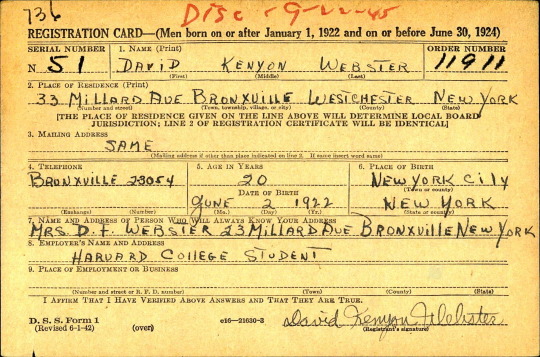 736 Disc - 9-22-45
REGISTRATION CARD—(Men born on or after January 1, 1922 and on or before June 30, 1924)
SERIAL NUMBER 1. NAME (Print) ORDER NUMBER
N 51 DAVID KENYON WEBSTER 11911
(First) (Middle) (Last)
2. PLACE OF RESIDENCE (Print)
33 MILLARD AVE BRONXVILLE WESTCHESTER NEW YORK
(Number and street) (Town, township, village, or city) (County) (State)
[THE PLACE OF RESIDENCE GIVEN ON THE LINE ABOVE WILL DETERMINE LOCAL BOARD
JURISDICTION; LINE 2 OF REGISTRATION CERTIFICATE WILL BE IDENTICAL]
3. MAILING ADDRESS
SAME
(Mailing address if other than place indicated on line 2. If same insert word same)
4. TELEPHONE 5. AGE IN YEARS 6. PLACE OF BIRTH
BRONXVILLE 2-3054 20 NEW YORK CITY
DATE OF BIRTH (Town or county)
JUNE 2 1922 NEW YORK
(Exchange) (Number) (Mo.) (Day) (Yr.) (State or country)
7. NAME AND ADDRESS OF PERSON WHO WILL ALWAYS KNOW YOUR ADDRESS
MRS. D. F. WEBSTER 23 MILLARD AVE BRONXVILLE NEW YORK
8. EMPLOYER'S NAME AND ADDRESS
HARVARD COLLEGE STUDENT
9. PLACE OF EMPLOYMENT OR BUSINESS
(Number and street or R. F. D. number) (Town) (County) (State)
I AFFIRM THAT I HAVE VERIFIED ABOVE ANSWERS AND THAT THEY ARE TRUE.
D. S. S. Form 1
(Revised 6-1-42) (over) c16—21630-2 David Kenyon Webster
(Registrant's signature)